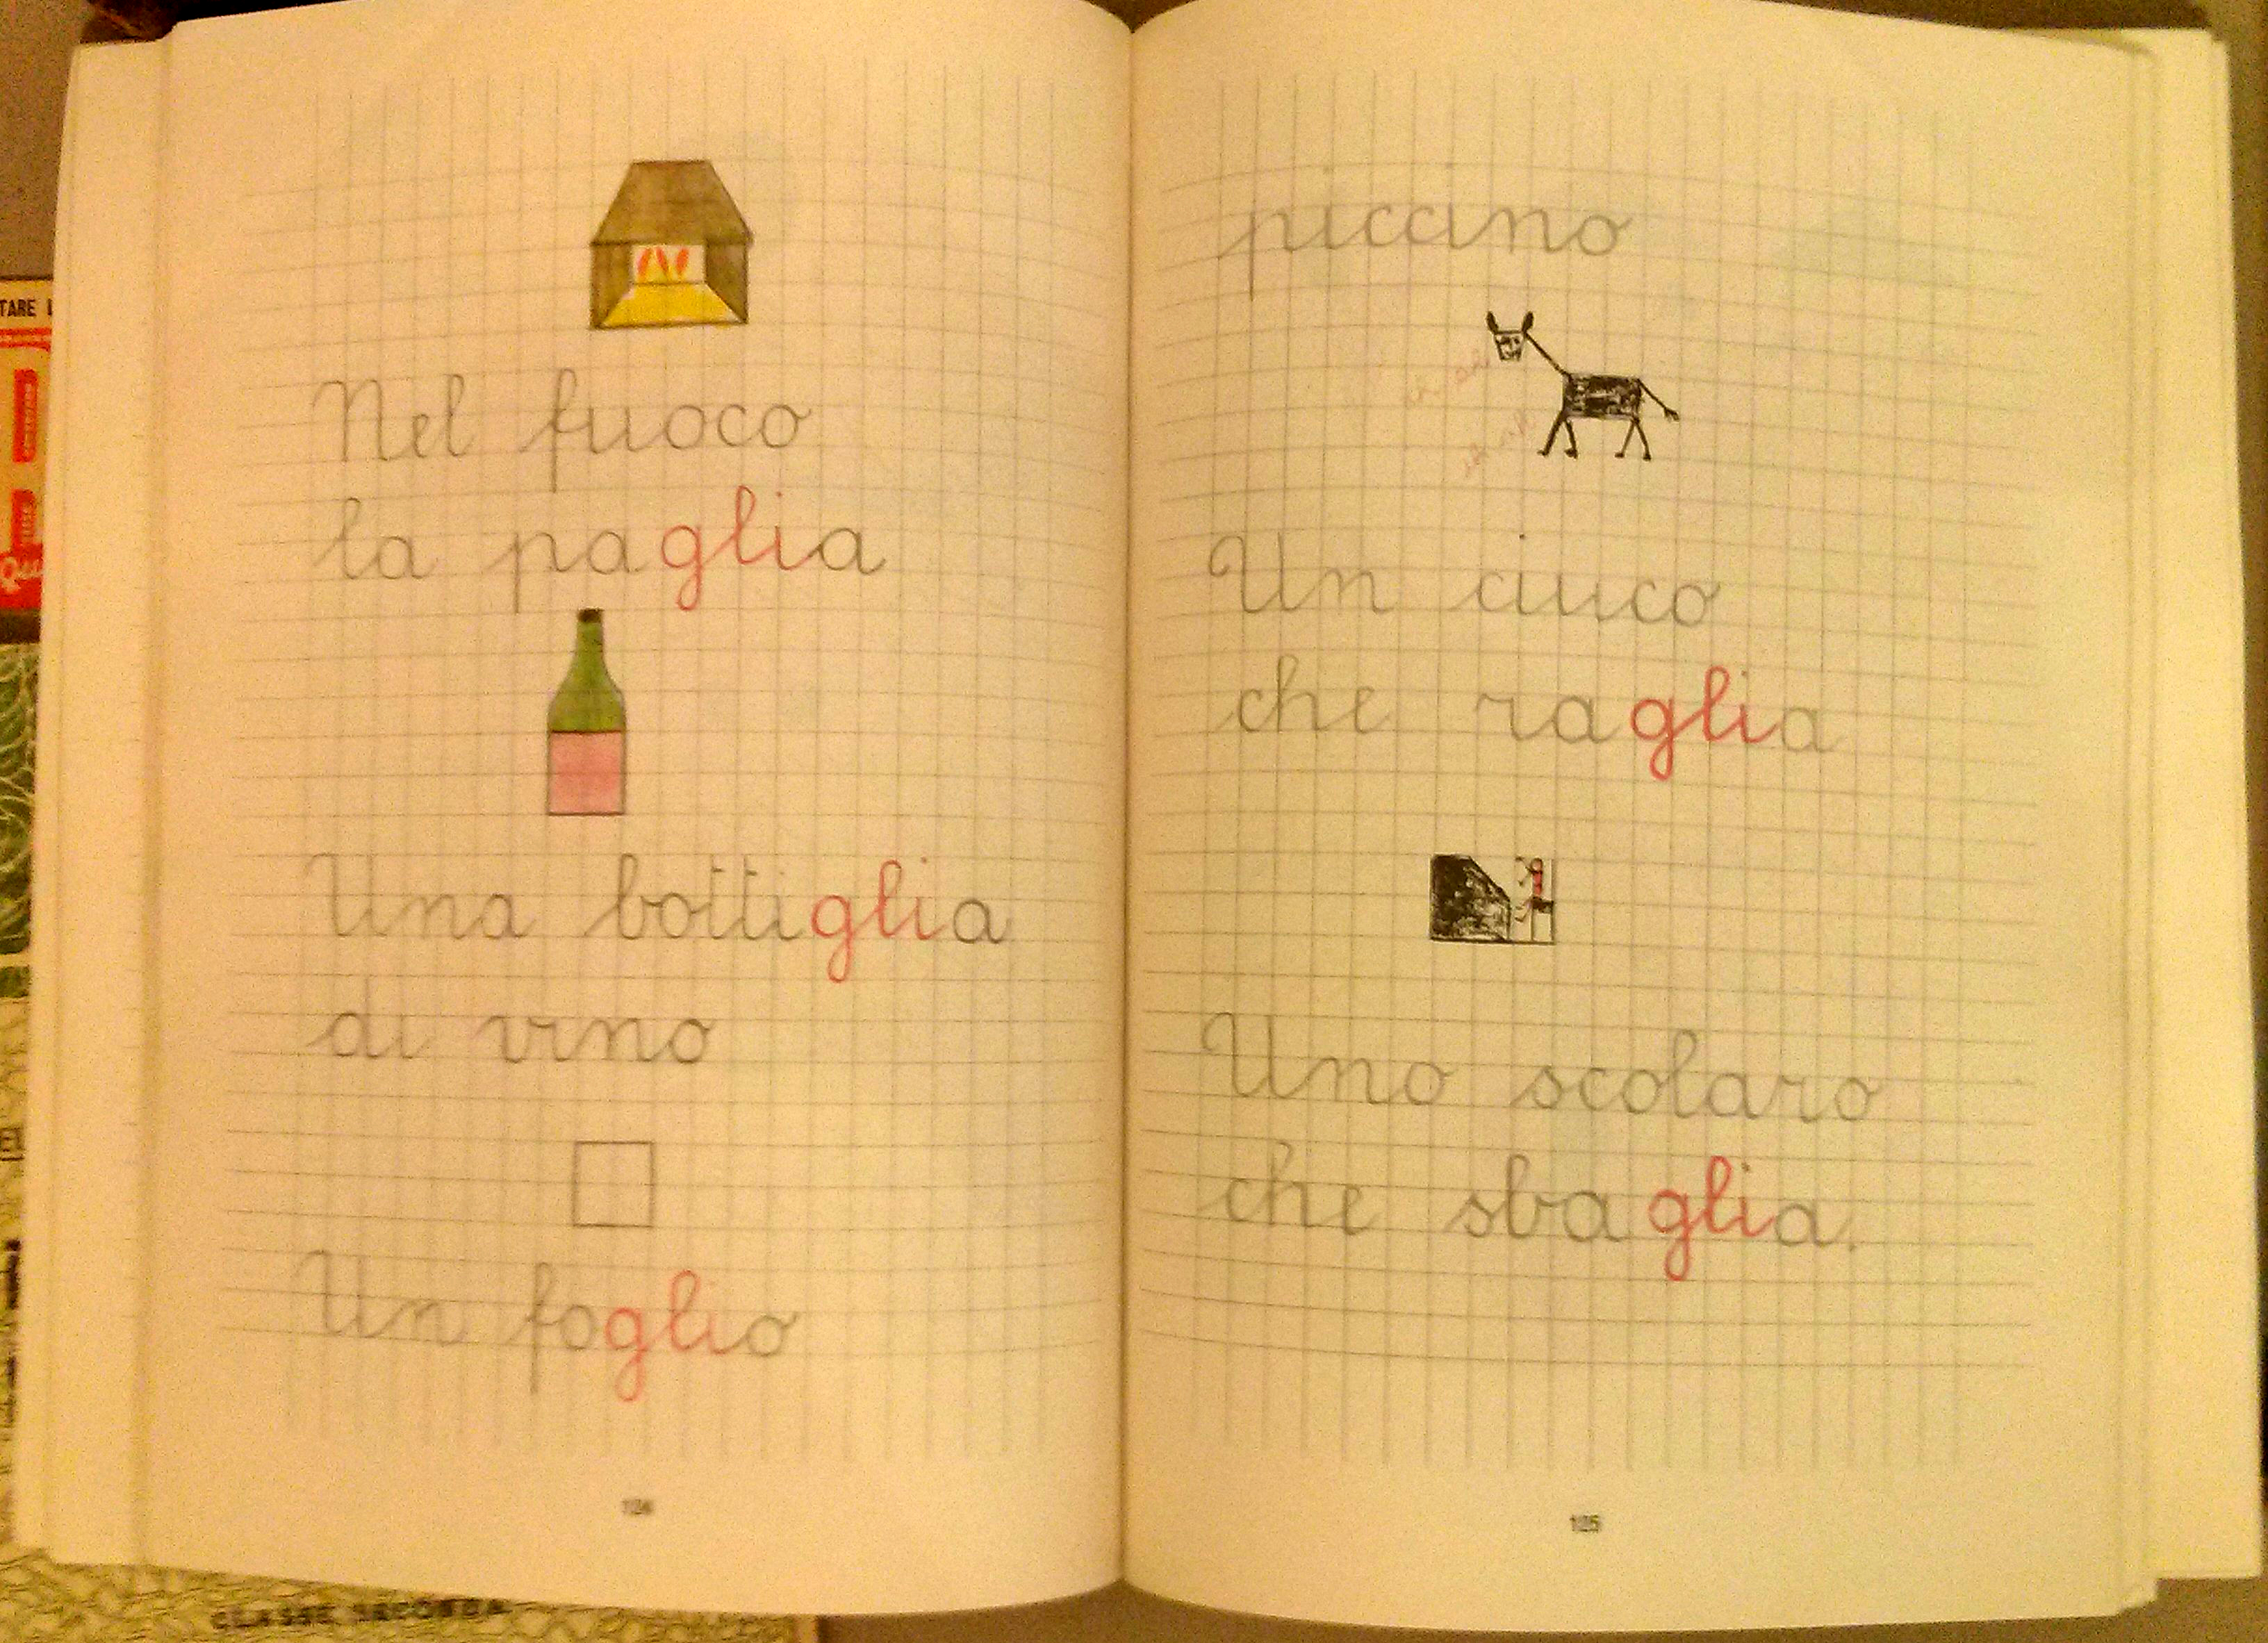 Nel fuoco
la paglia
Una bottiglia
di vino
Un foglio
124
piccino
Un ciuco
che raglia
Uno scolaro
che sbaglia.
125
TARE
CLASSE SECONDA